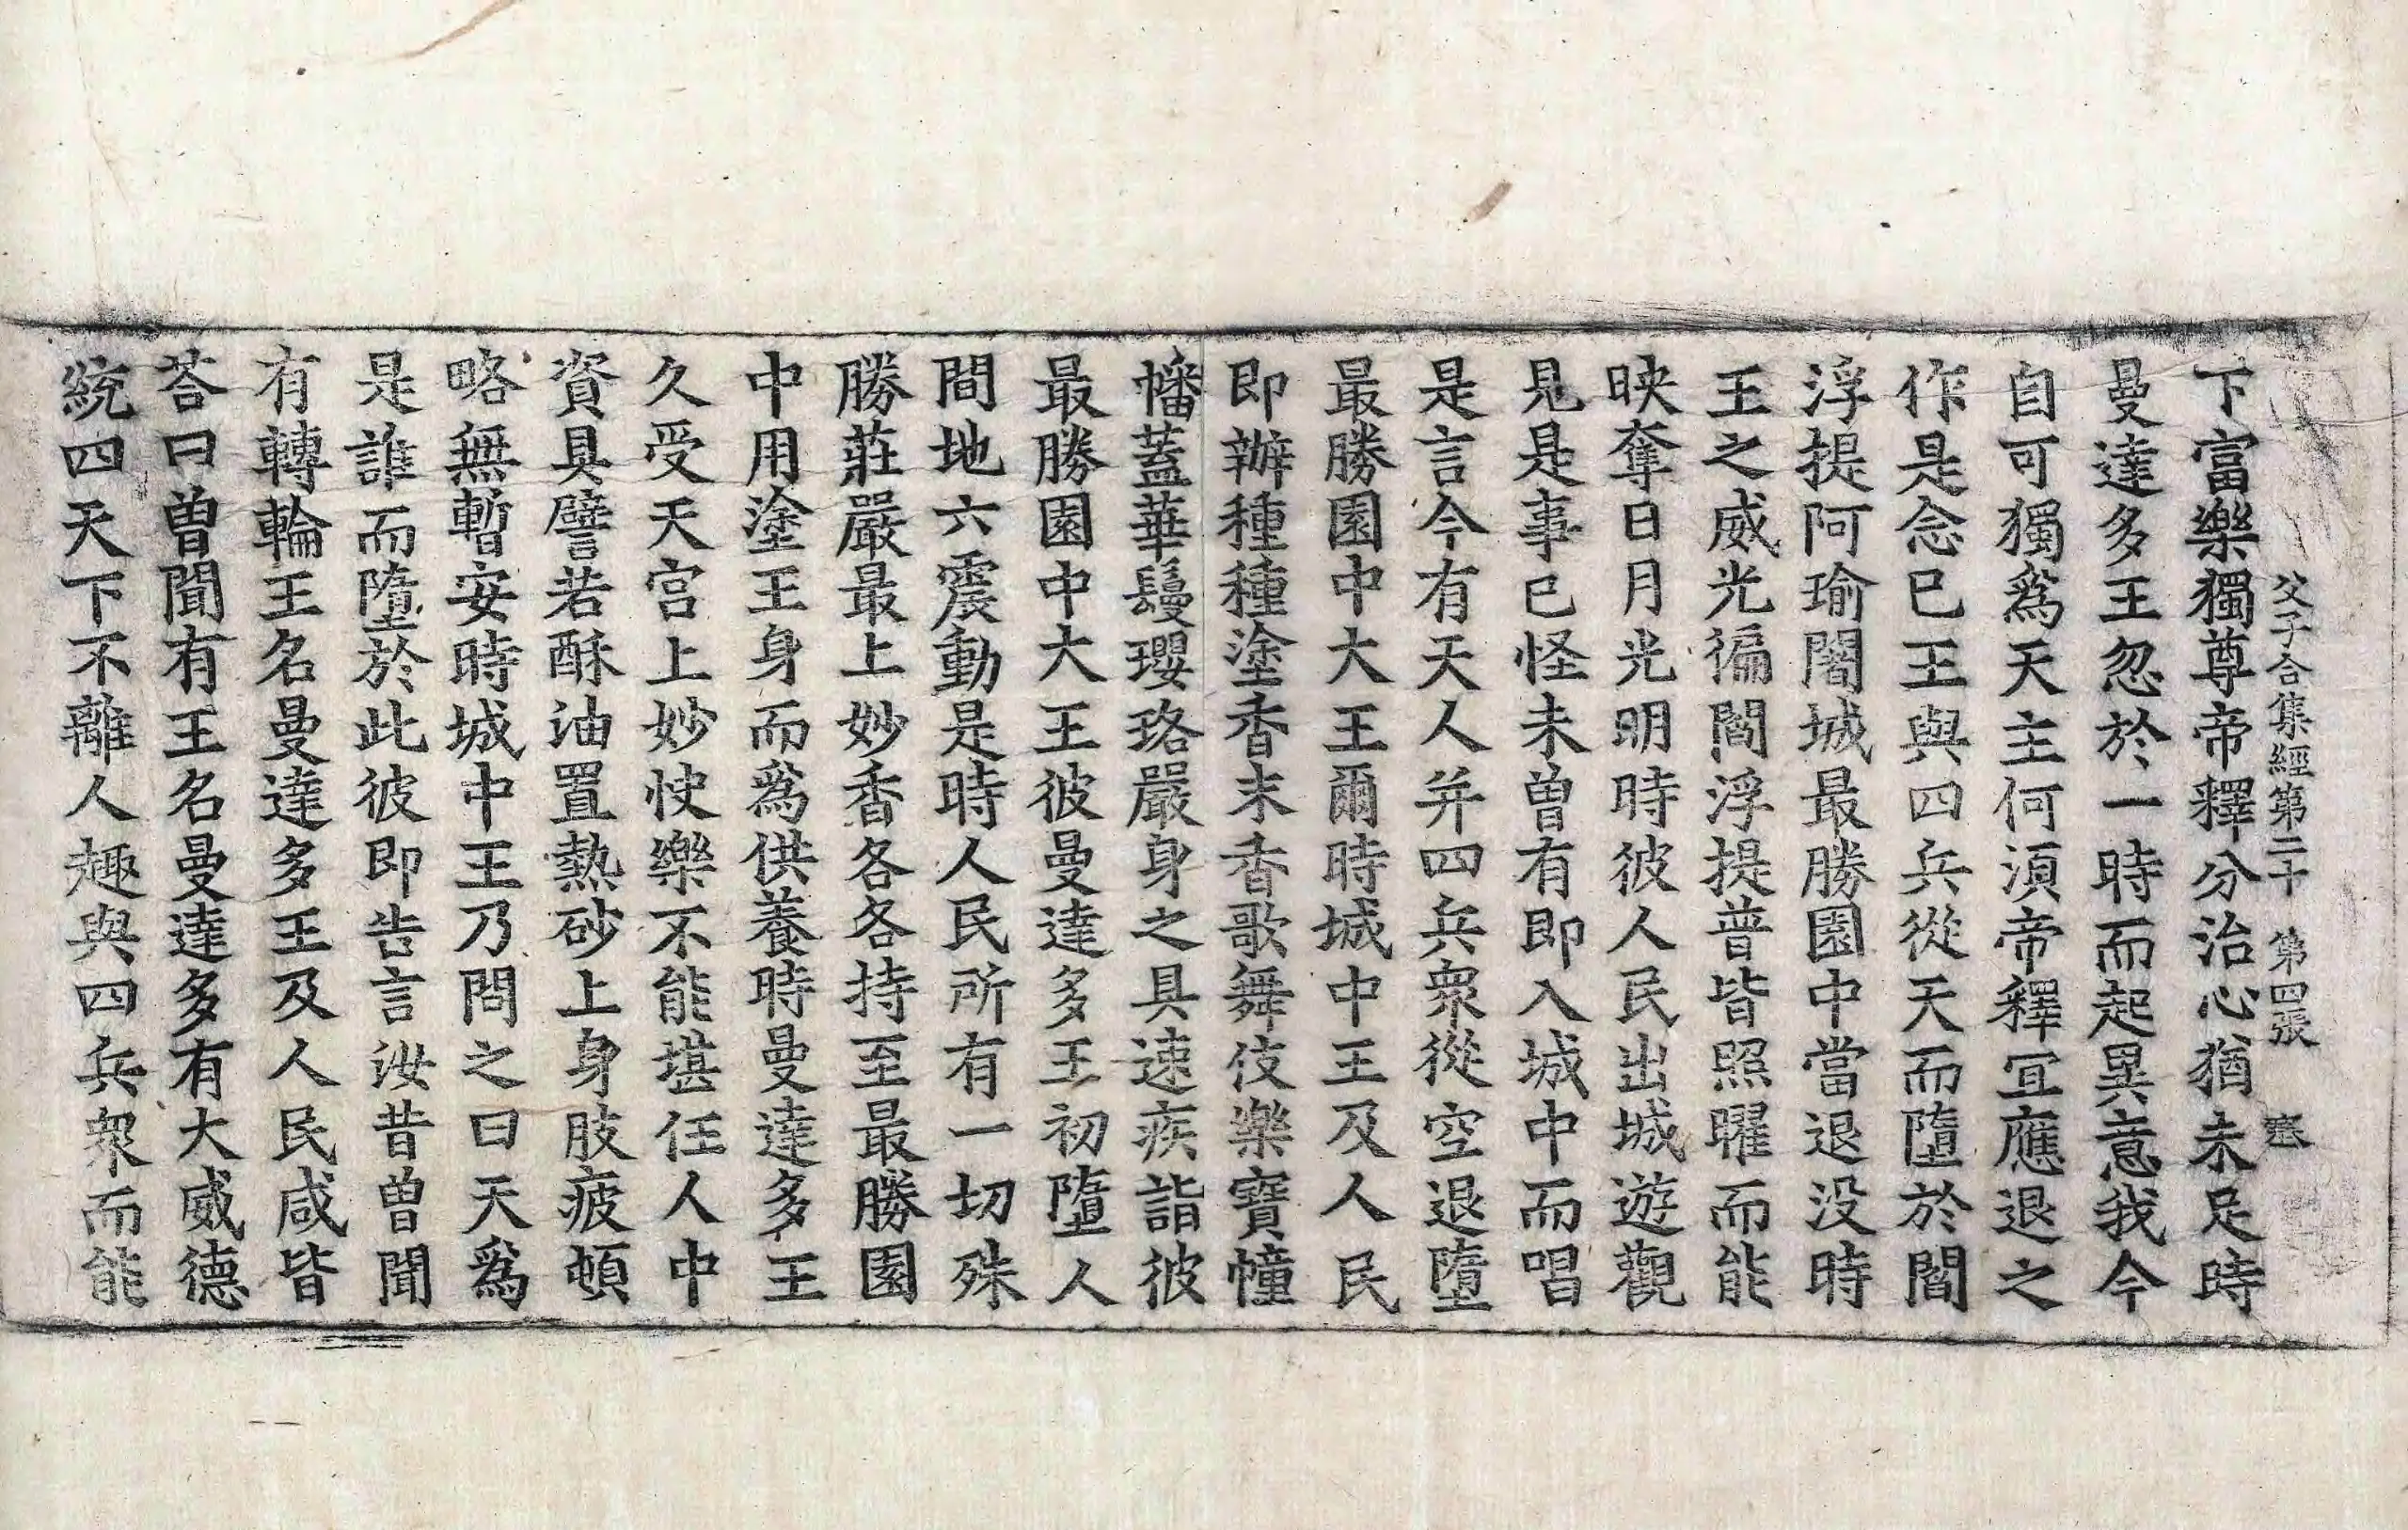 父子合集經第二十　第四張　塞
下富樂獨尊帝釋分治心猶未足時
曼達多王忽於一時而起異意我今
自可獨爲天主何湏帝釋宜應退之
作是念已王與四兵從天而墮於閻
浮提阿瑜闍城最勝園中當退没時
王之威光徧閻浮提普皆照曜而能
映奪日月光明時彼人民出城遊觀
見是事已怪未曾有即入城中而唱
是言今有天人并四兵衆從空退墮
最勝園中大王爾時城中王及人民
即辦種種塗香末香歌舞伎樂寶幢
幡蓋華鬘瓔珞嚴身之具速疾詣彼
最勝園中大王彼曼達多王初墮人
間地六震動是時人民所有一切殊
勝莊嚴最上妙香各各持至最勝園
中用塗王身而爲供養時曼達多王
久受天宫上妙快樂不能堪任人中
資具譬若酥油置熱砂上身肢疲頓
略無暫安時城中王乃問之曰天爲
是誰而墮於此彼即告言汝昔曾聞
有轉輪王名曼達多王及人民咸皆
荅曰曾聞有王名曼達多有大威德
統四天下不離人趣與四兵衆而能